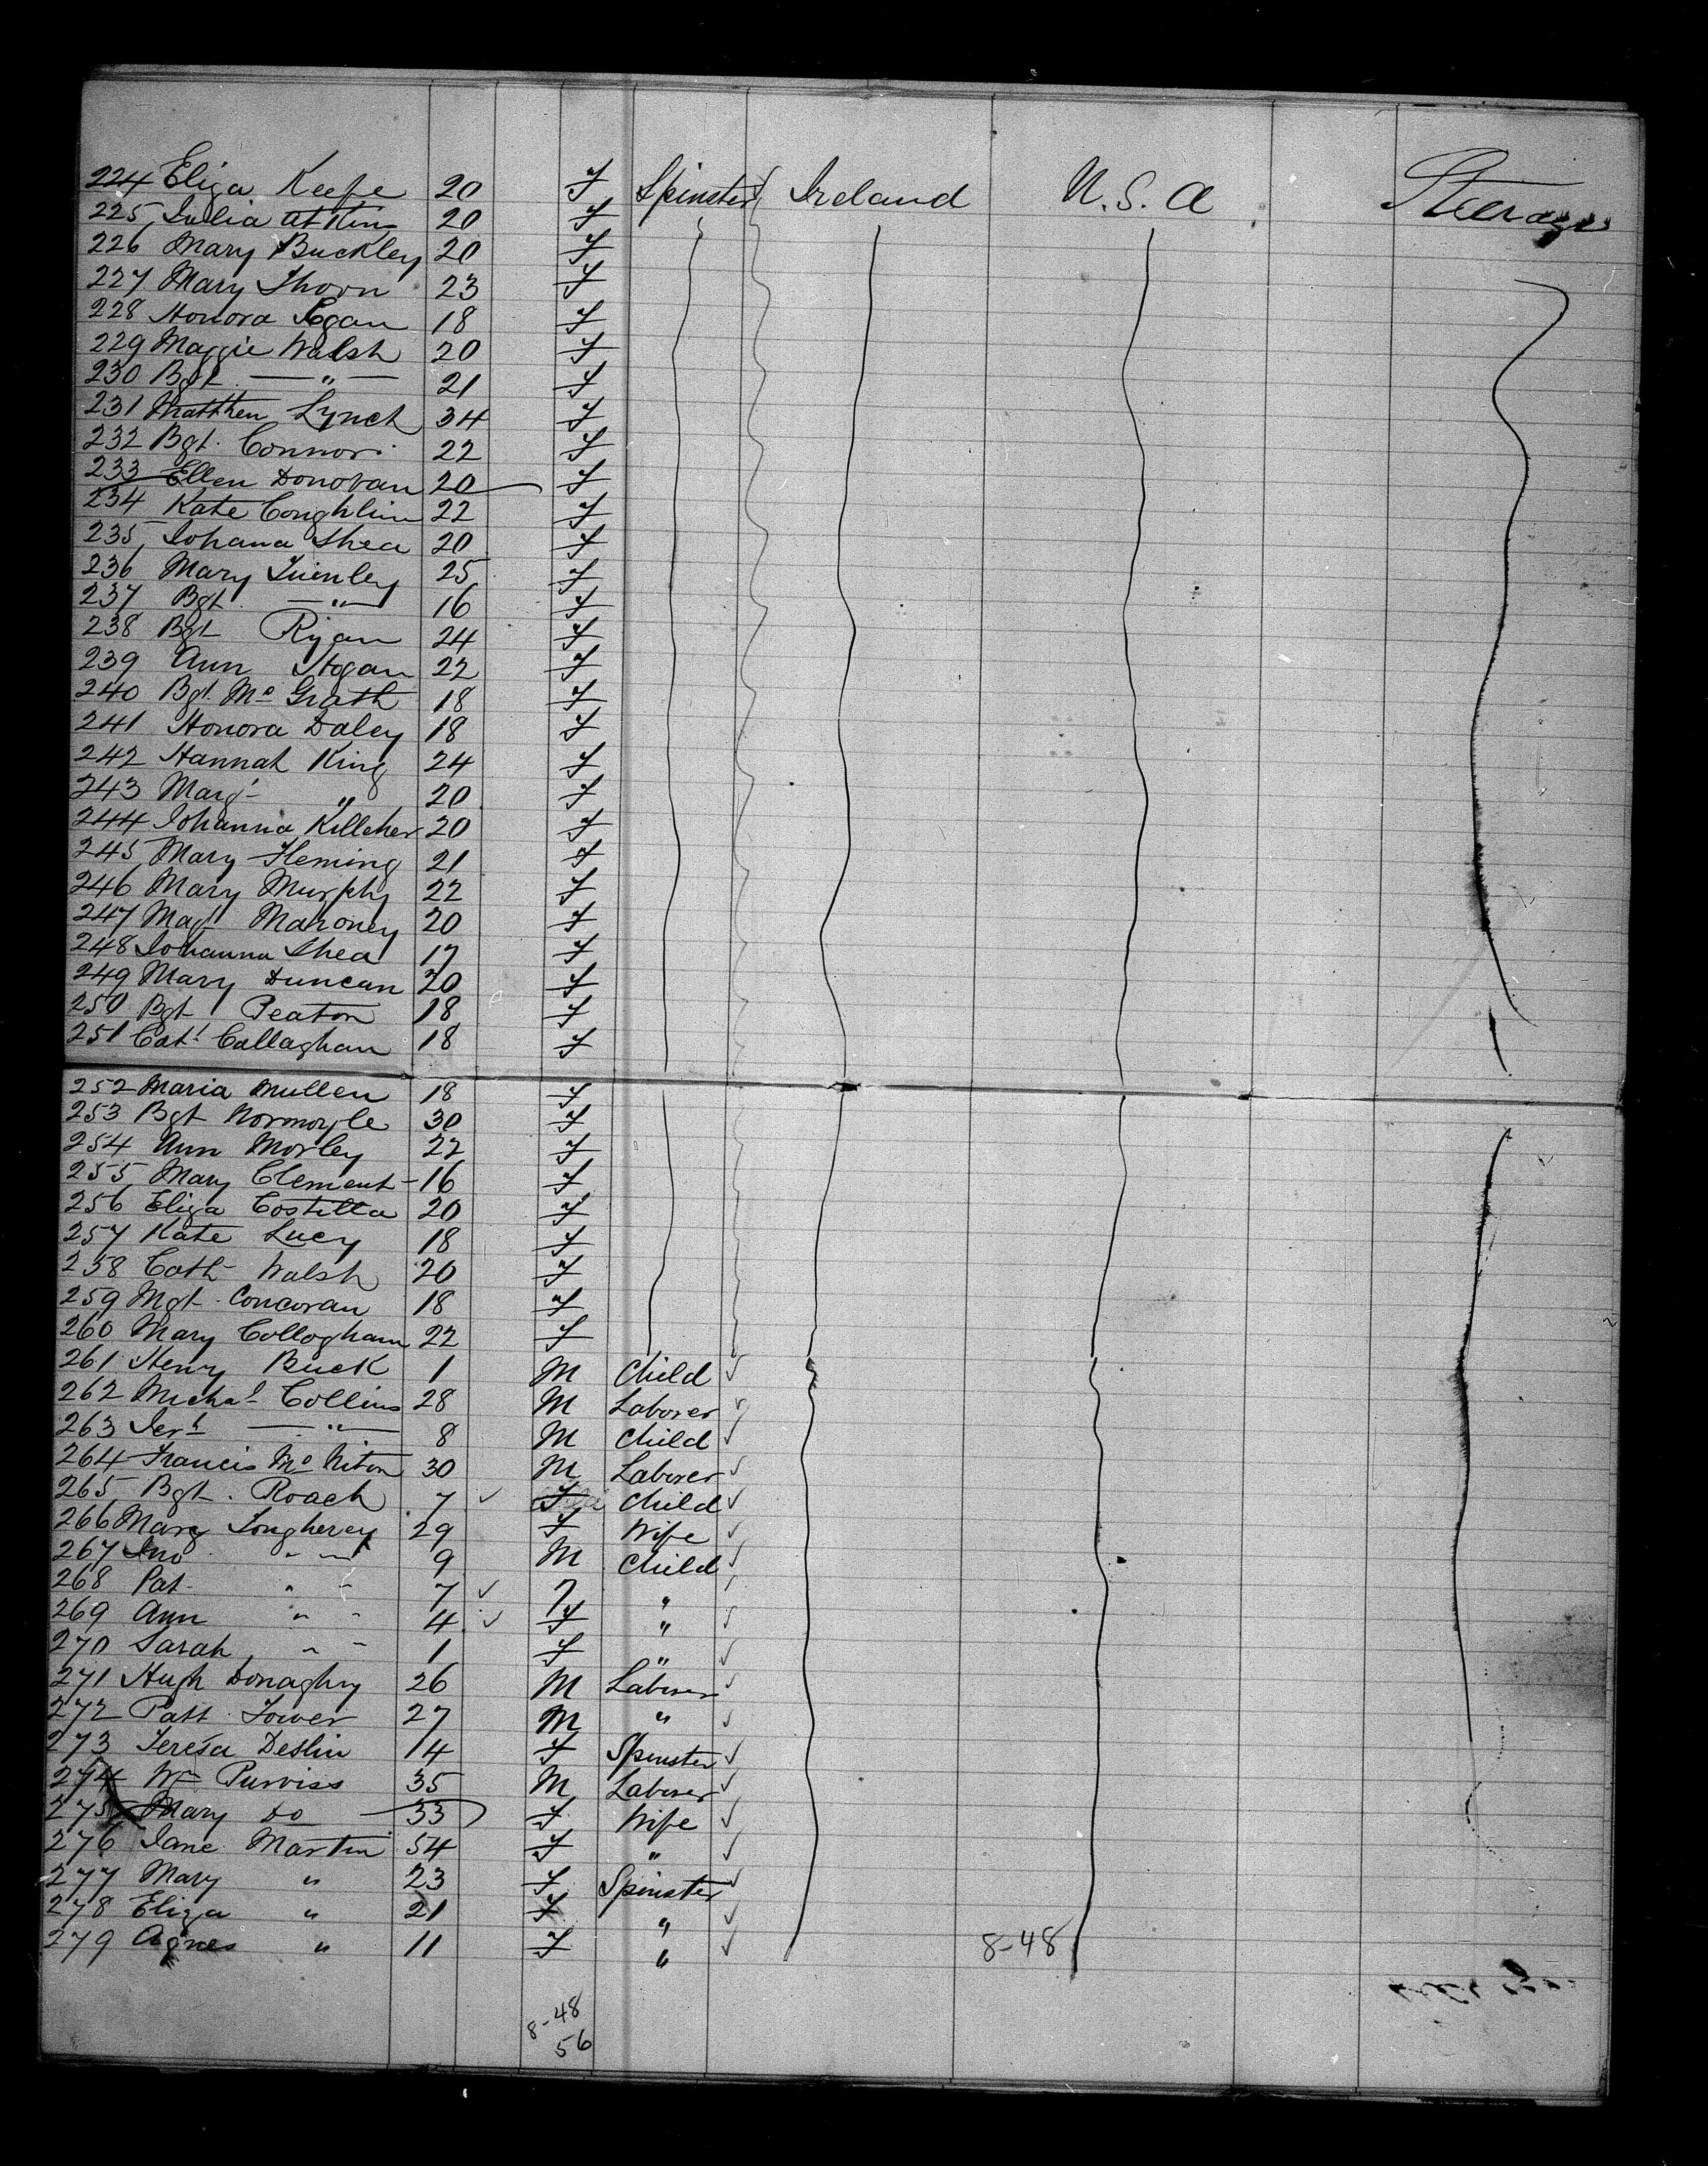 224 Eliza Keefe 20 F Spinster Ireland U.S.A Steerage
225 Julia Atkins 20 F
226 Mary Buckley 20 F
227 Mary Thorn 23 F
228 Honora Egan 18 F
229 Maggie Walsh 20 F
230 Bgt — " — 21 F
231 Matthew Lynch 34 F
232 Bgt. Connor 22 F
233 Ellen Donovan 20 F
234 Kate Coughlin 22 F
235 Johana Shea 20 F
236 Mary 25 F
237 Bgt — " — 16 F
238 Bgt Ryan 24 F
239 Ann Hogan 22 F
240 Bgt. Mc Grath 18 F
241 Honora Daley 18 F
242 Hannah King 24 F
243 Margt " 20 F
244 Johanna Killeher 20 F
245 Mary Fleming 21 F
246 Mary Murphy 22 F
247 Magt Mahoney 20 F
248 Johanna Shea 17 F
249 Mary Duncan 20 F
250 Bgt Peaton 18 F
251 Cath Callaghan 18 F
252 Maria Mullen 18 F
253 Bgt Normoyle 30 F
254 Ann Morley 22 F
255 Mary Clement 16 F
256 Eliza Costilla 20 F
257 Kate Lucy 18 F
258 Cath Walsh 20 F
259 Mgt. Concoran 18 F
260 Mary Collogham 22 F
261 Henry Buck 1 M Child
262 Michal Collins 28 M Laborer
263 Jerh — " — 8 M Child
264 Francis Mc Niton 30 M Laborer
265 Bgt. Roach 7 F Child
266 Mary Longherey 29 F Wife
267 Jno " 9 M Child
268 Pat " 7 "
269 Ann " 4 F "
270 Sarah " 1 F "
271 Hugh Donaghy 26 M Laborer
272 Patt Tower 27 M "
273 Teresa Deslin 14 F Spinster
274 Wm Purviss 35 M Laborer
275 Mary Do 33 F Wife
276 Jane Martin 54 F "
277 Mary " 23 F Spinster
278 Eliza " 21 F "
279 Agnes " 11 F " 8-48
8-48
56